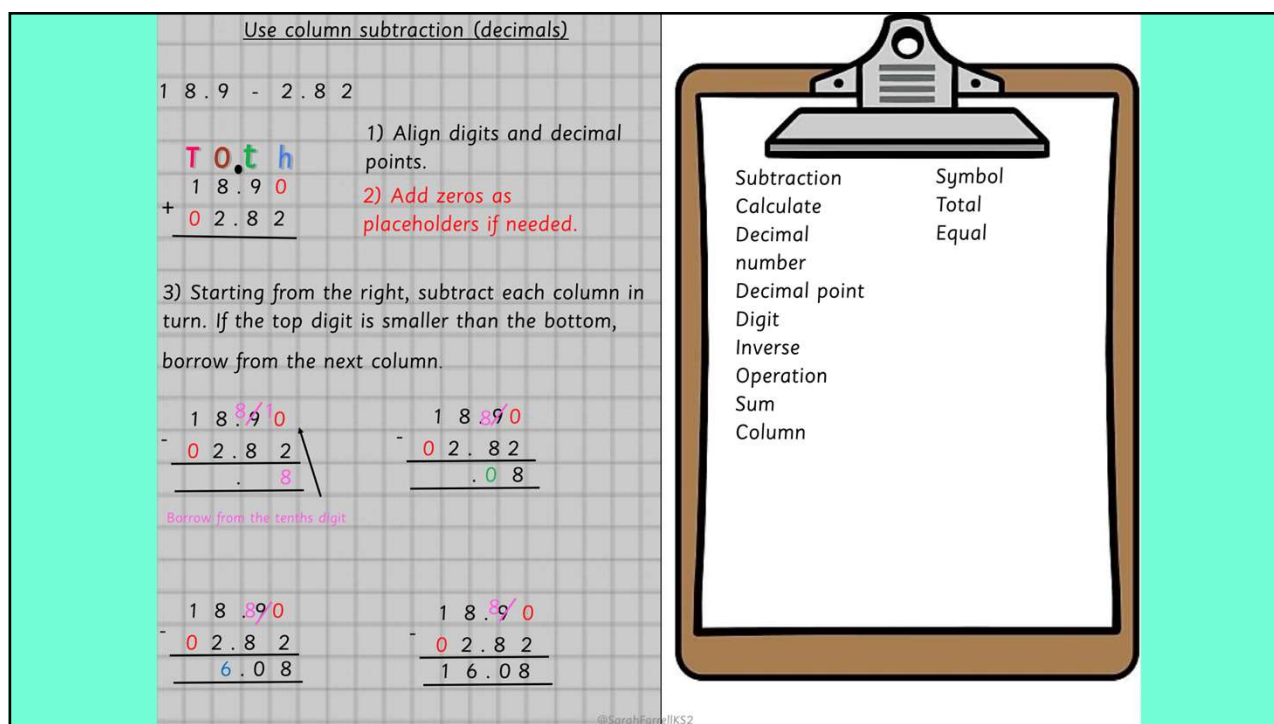 Use column subtraction (decimals)
18.9 - 2.82
1) Align digits and decimal
points.
2) Add zeros as
placeholders if needed.
T O.t h
18.90
+
02.82
3) Starting from the right, subtract each column in
turn. If the top digit is smaller than the bottom,
borrow from the next column.
8 1
18.90
-
02.82
. 8
Borrow from the tenths digit
8
18.90
-
02.82
.08
8
18.90
-
02.82
6.08
8
18.90
-
02.82
16.08
Subtraction
Calculate
Decimal
number
Decimal point
Digit
Inverse
Operation
Sum
Column
Symbol
Total
Equal
@SarahFarrellKS2